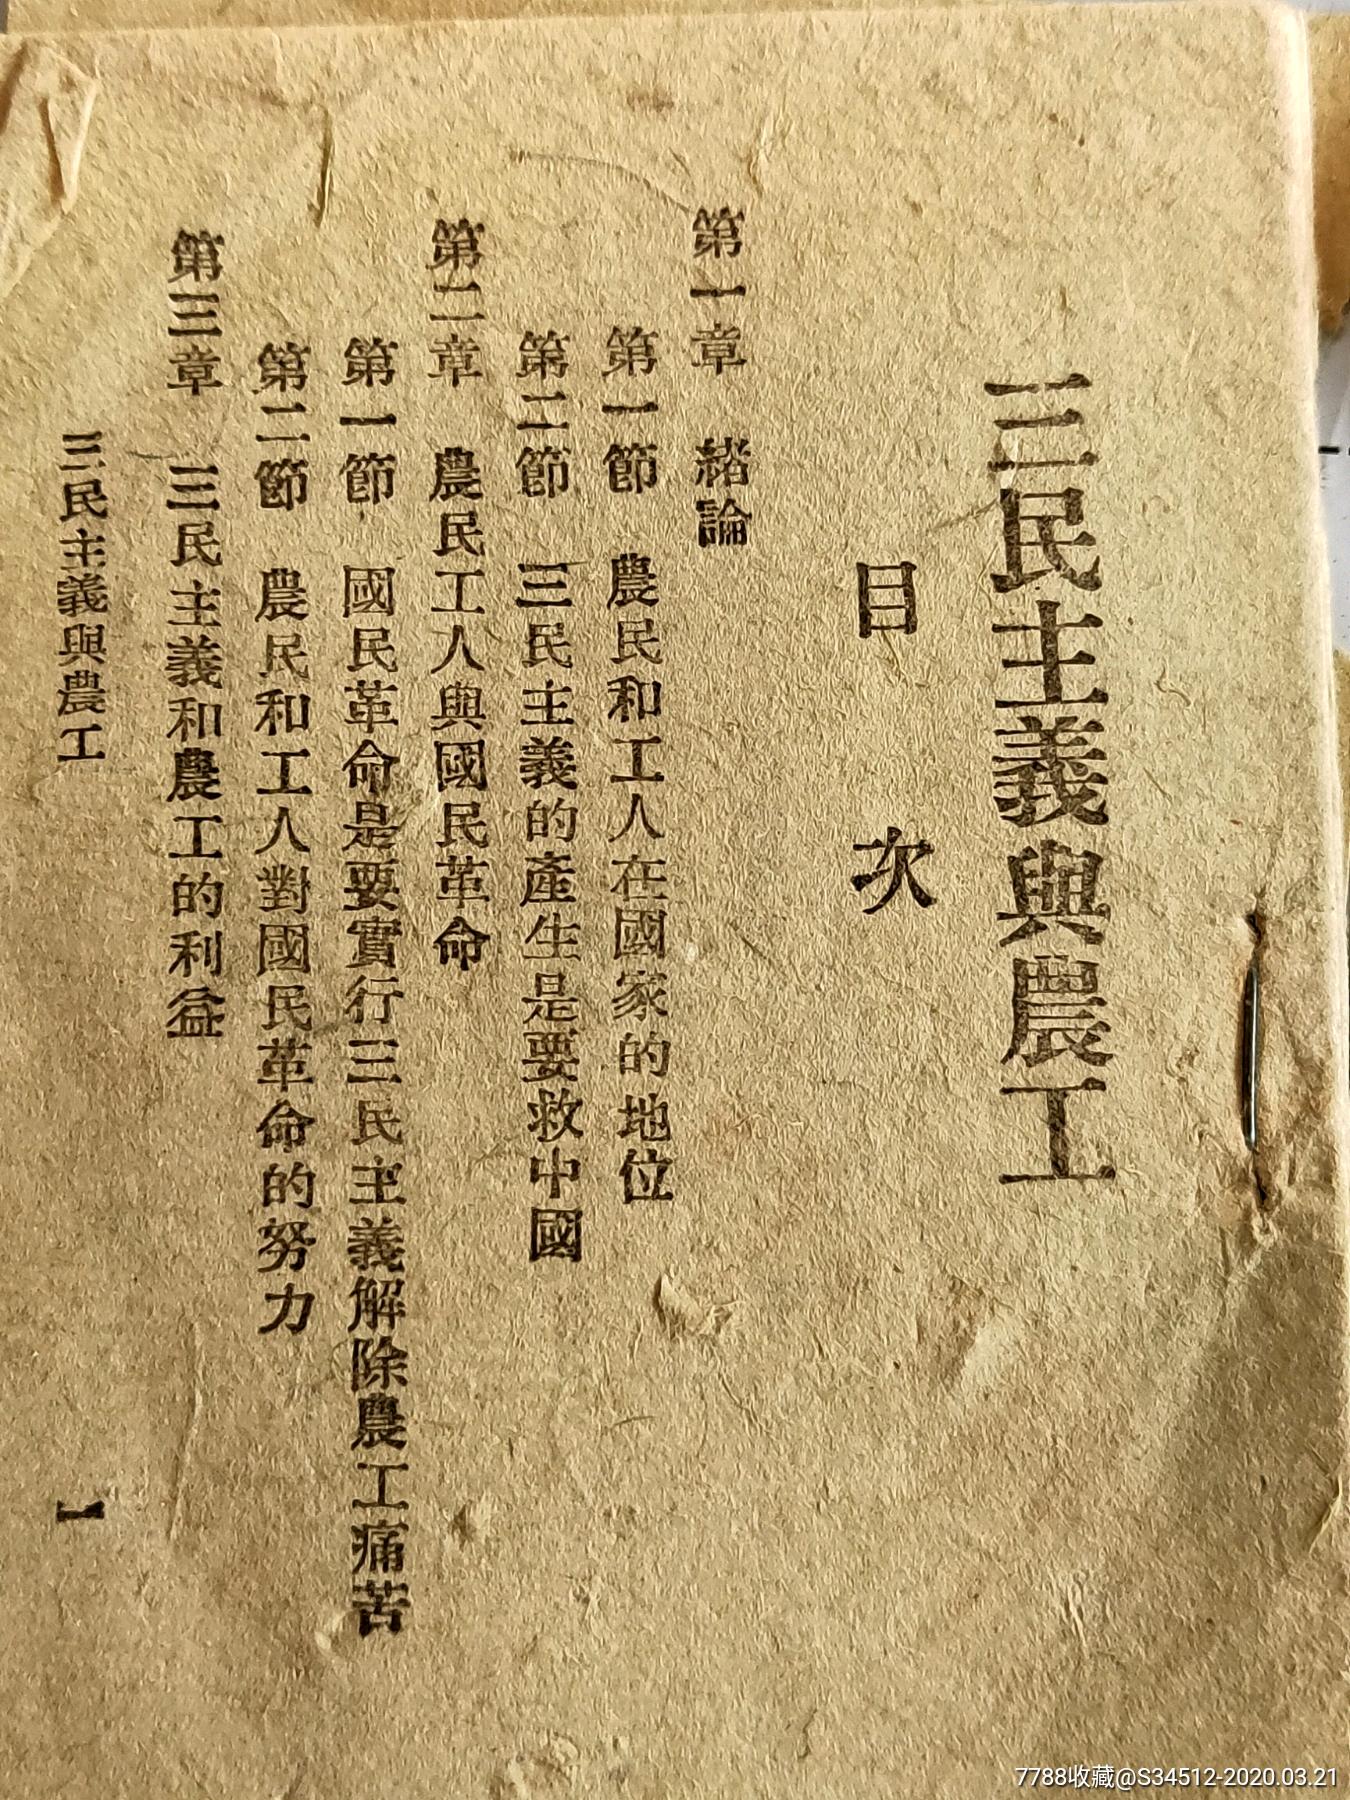 三民主義與農工
目次
第一章 緒論
第一節 農民和工人在國家的地位
第二節 三民主義的產生是要救中國
第二章 農民工人與國民革命
第一節 國民革命是要實行三民主義解除農工痛苦
第二節 農民和工人對國民革命的努力
第三章 三民主義和農工的利益
三民主義與農工
1
7788收藏@S34512-2020.03.21